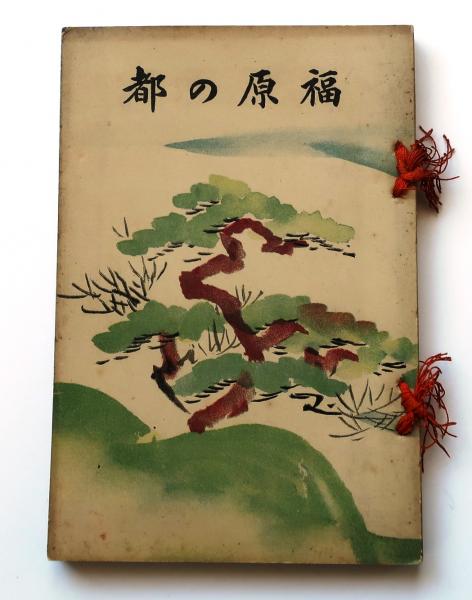 福原の都